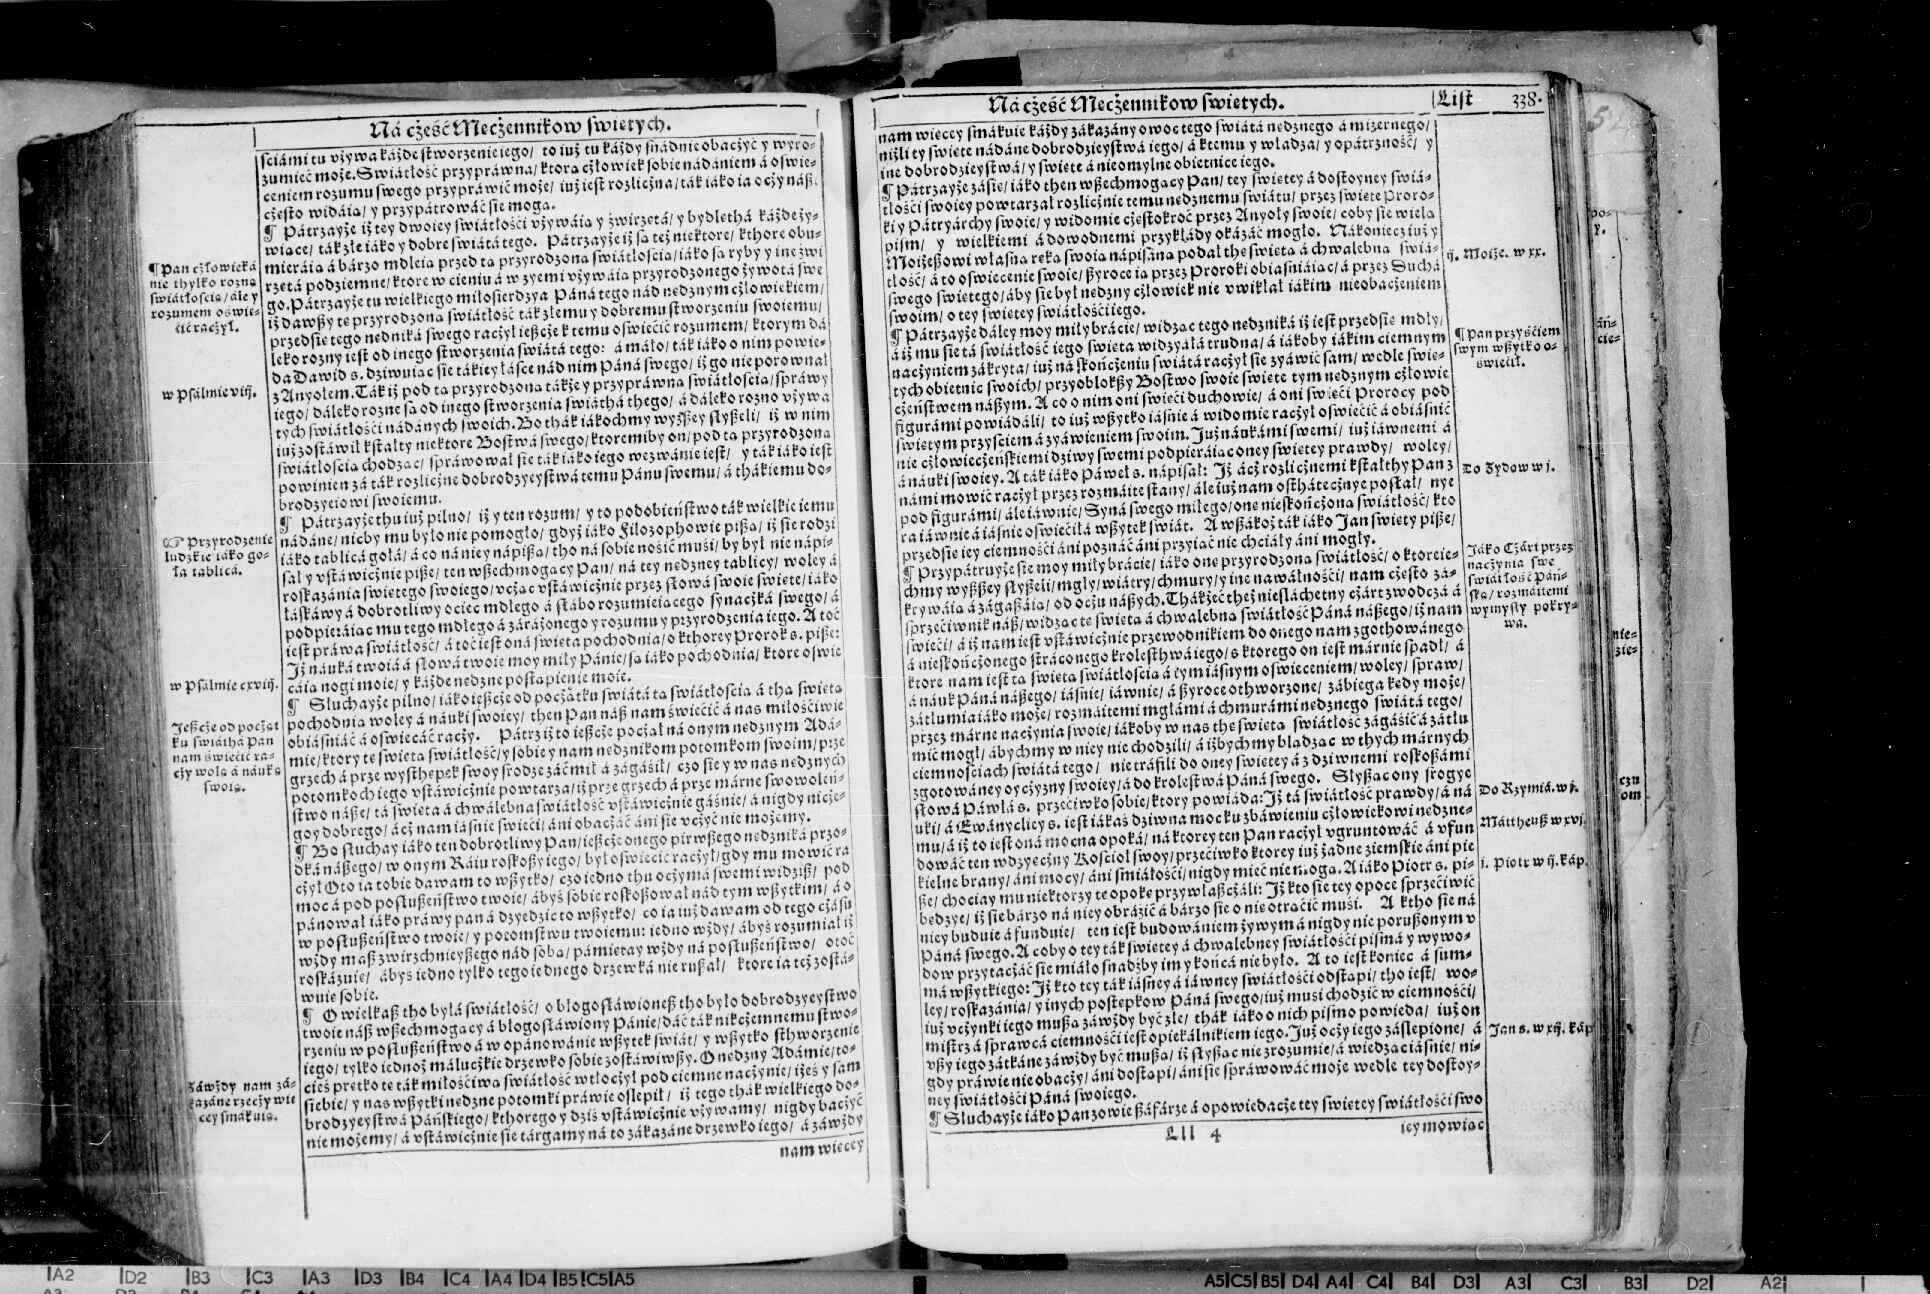 Ná cżeść Mecżennikow swietych.
sciámi tu vżywa káżde stworzenie iego/ to iuż tu káżdy snádnie obacżyć y wyro-
zumieć może. Swiátłość przypráwna/ ktora cżłowiek sobie nádániem á oświe-
ceniem rozumu swego przypráwić może/ iuż iest rozlicżna/ ták iáko ia ocży náß
cżesto widáią/ y przypátrowáć sie mogą.
¶ Pátrzayże iż tey dwoiey swiátłości vżywáią y źwirzetá/ y bydlethá káżde ży-
wiące/ ták złe iáko y dobre swiátá tego. Pátrzayże iż są też niektore/ kthore obu-
mieráią á bárzo mdleią przed tą przyrodzoną swiátłoscią/ iáko są ryby y ine źwi
rzetá podziemne/ ktore w cieniu á w zyemi vżywáią przyrodzonego żywotá swe
go. Pátrzayże tu wielkiego miłosierdzya Páná tego nád nedznym cżłowiekiem/
iż dawßy te przyrodzoną swiátłość ták złemu y dobremu stworzeniu swoiemu/
przedsie tego nedniká swego racżył ieszcże k temu oświecić rozumem/ ktorym dá
leko rozny iest od inego stworzenia swiátá tego: á máło/ ták iáko o nim powie-
da Dawid s. dziwuiąc sie tákiey łásce nád nim Páná swego/ iż go nie porownał
z Anyołem. Ták iż pod tą przyrodzoną tákże y przypráwną swiátłoscią/ spráwy
iego/ dáleko rozne są od inego stworzenia swiáthá thego/ á dáleko rozno vżywa
tych swiátłości nádánych swoich. Bo thák iákochmy wyßßey słyßeli/ iż w nim
iuż zostáwił kstałty niektore Bostwá swego/ ktoremiby on/ pod tą przyrodzoną
swiátłoscią chodząc/ spráwował sie ták iáko iego wezwánie iest/ y ták iáko iest
powinien zá ták rozlicżne dobrodzyeystwá temu Pánu swemu/ á thákiemu do-
brodzyeiowi swoiemu.
¶ Pátrzayże thu iuż pilno/ iż y ten rozum/ y to podobieństwo ták wielkie iemu
nádáne/ nicby mu było nie pomogło/ gdyż iáko Filozophowie pißą/ iż sie rodzi
iáko tablicá gołá/ á co ná niey nápißą/ tho ná sobie nosić musi/ by był nie nápi-
sał y vstáwicżnie piße/ ten wßechmogący Pan/ ná tey nedzney tablicy/ woley á
roskazánia swietego swoiego/ vcżąc vstáwicżnie przez słowá swoie swiete/ iáko
łáskáwy á dobrotliwy ociec mdłego á słábo rozumieiącego synacżká swego/ á
podpieráiąc mu tego mdłego á záráżonego y rozumu y przyrodzenia iego. A toć
iest práwa swiátłość/ á toć iest oná swieta pochodnia/ o kthorey Prorok s. piße:
Iż náuká twoiá á słowá twoie moy miły Pánie/ są iáko pochodnia/ ktore oświe
caią nogi moie/ y káżde nedzne postąpienie moie.
¶ Słuchayże pilno/ iáko ießcże od pocżątku swiátá tą swiátłoscią á thą swietą
pochodnią woley á náuki swoiey/ then Pan náß nam świecić á nas miłościwie
obiásniáć á oswiecáć racży. Pátrz iż to ießcże pocżął ná onym nedznym Adá-
mie/ ktory te swietą swiátłość/ y sobie y nam nednikom potomkom swoim/ prze
grzech á prze wysthepek swoy srodze záćmił á zágásił/ czo sie y w nas nedznych
potomkoch iego vstáwicżnie powtarza/ iż prze grzech á prze márne swowoleń-
stwo náße/ tá swieta á chwalebna swiátłość vstáwicżnie gáśnie/ á nigdy nicże-
goy dobrego/ ácż nam iásnie świeci/ áni obacżáć áni sie vcżyć nie możemy.
¶ Bo słuchay iáko ten dobrotliwy Pan/ ießcże onego pirwßego nedniká przo-
dká náßego/ w onym Ráiu roskoßy iego/ był oświecić racżył/ gdy mu mowić ra
cżył Oto ia tobie dawam to wßytko/ czo iedno thu ocżymá swemi widziß/ pod
moc á pod posłußeństwo twoie/ ábyś sobie roskoßował nád tym wßytkim/ á o
pánował iáko práwy pan á dzyedzic to wßytko/ co ia iuż dawam od tego cżásu
w posłußeństwo twoie/ y potomstwu twoiemu: iedno wżdy/ ábyś rozumiał iż
wżdy maß zwirzchnieyßego nád sobą/ pámietay wżdy ná posłußeństwo/ otoć
roskázuie/ ábyś iedno tylko tego iednego drzewká nie rußał/ ktore ia też zostá-
wuie sobie.
¶ O wielkaß tho byłá swiátłość/ o błogosłáwioneß tho było dobrodzyeystwo
twoie náß wßechmogący á błogosłáwiony Pánie/ dáć ták nikcżemnemu stwo-
rzeniu w posłußeństwo á w opánowánie wßytek świát/ y wßytko sthworzenie
iego/ tylko iednoż málucżkie drzewko sobie zostáwiwßy. O nedzny Adámie/ to-
cieś pretko te ták miłościwą swiátłość wtłocżył pod ciemne nacżynie/ iżeś y sam
siebie/ y nas wßytki nedzne potomki práwie oslepił/ iż tego thák wielkiego do-
brodzyeystwá Páńskiego/ kthorego y dziś vstáwicżnie vżywamy/ nigdy bacżyć
nie możemy/ á vstáwicżnie sie tárgamy ná to zákazáne drzewko iego/ á záwżdy
nam wiecey
¶ Pan cżłowieká
nie thylko rozną
swiátłoscią/ ále y
rozumem oświe-
cić racżył.
w Psálmie viij.
☞ Przyrodzenie
ludzkie iáko go-
ła tablicá.
w Psálmie cxviij.
Ießcże od pocżąt
ku swiáthá Pan
nam świecić ra-
cży wolą á náuką
swoią.
Záwżdy nam zá-
kazáne rzecży wie
cey smákuią.
Ná cżeść Mecżennikow swietych.
List 338.
nam wiecey smákuie káżdy zákazány owoc tego swiátá nedznego á mizernego/
niżli ty swiete nádáne dobrodzieystwá iego/ á k temu y władza/ y opátrzność/ y
ine dobrodzieystwá/ y swiete á nieomylne obietnice iego.
¶ Pátrzayże zásie/ iáko then wßechmogący Pan/ tey swietey á dostoyney swiá-
tłości swoiey powtarzał rozlicżnie temu nedznemu swiátu/ przez swiete Proro-
ki y Pátryárchy swoie/ y widomie cżestokroć przez Anyoły swoie/ coby sie wielą
pism/ y wielkiemi á dowodnemi przykłády okázáć mogło. Nákoniecz iuż y
Moiżeßowi własną reką swoią nápisáną podał the swietą á chwalebną swiá-
tłość/ á to oświecenie swoie/ ßyroce ią przez Proroki obiasniáiąc/ á przez Duchá
swego swietego/ áby sie był nedzny cżłowiek nie vwikłał iákim nieobacżeniem
swoim/ o tey swietey swiátłości iego.
¶ Pátrzayże dáley moy miły brácie/ widząc tego nedniká iż iest przedsie mdły/
á iż mu sie tá swiátłość iego swieta widzyáłá trudna/ á iákoby iákim ciemnym
nacżyniem zákryta/ iuż ná skońcżeniu swiátá racżył sie zyáwić sam/ wedle swie-
tych obietnic swoich/ przyoblokßy Bostwo swoie swiete tym nedznym cżłowie
cżeństwem náßym. A co o nim oni świeći duchowie/ á oni świeći Prorocy pod
figurámi powiádáli/ to iuż wßytko iásnie á widomie racżył oświecić á obiásnić
swietym przyściem á zyáwieniem swoim. Iuż náukámi swemi/ iuż iáwnemi á
nie cżłowiecżeńskiemi dziwy swemi podpieráiąc oney swietey prawdy/ woley/
á náuki swoiey. A ták iáko Páweł s. nápisał: Iż ácż rozlicżnemi kstałthy Pan z
námi mowić racżył przez rozmáite stany/ ále iuż nam ostháthecżnye posłał/ nye
pod figurámi/ ále iáwnie/ Syná swego miłego/ one nieskońcżoną swiátłość/ kto
ra iáwnie á iásnie oświeciłá wßytek świát. A wßákoż ták iáko Jan swiety piße/
przedsie iey ciemności áni poznáć áni przyiąć nie chciáły áni mogły.
¶ Przypátruyże sie moy miły brácie/ iáko one przyrodzoną swiátłość/ o ktoreie-
chmy wyßßey słyßeli/ mgły/ wiátry/ chmury/ y ine nawáłności/ nam cżesto zá-
krywáią á zágaßáią/ od ocżu náßych. Thákżeć też nießláchetny cżárt zwodcżá á
sprzeciwnik náß/ widząc te swietą á chwalebną swiátłość Páná náßego/ iż nam
świeci/ á iż nam iest vstáwicżnie przewodnikiem do onego nam zgothowánego
á nieskońcżonego stráconego krolesthwá iego/ s ktorego on iest márnie spadł/ á
ktore nam iest tá swietą swiátłoscią á tym iásnym oświeceniem/ woley/ spraw/
á náuk Páná náßego/ iásnie/ iáwnie/ á ßyroce othworzone/ zábiega kedy może/
zátłumia iáko może/ rozmáitemi mgłámi á chmurámi nedznego swiátá tego/
przez márne nacżynia swoie/ iákoby w nas the swietą swiátłość zágásić á zátłu
mić mogł/ ábychmy w niey nie chodzili/ á iżbychmy błądząc w thych márnych
ciemnościach swiátá tego/ nie tráfili do oney swietey á z dziwnemi roskoßámi
zgotowáney oycżyzny swoiey/ á do krolestwá Páná swego. Słyßąc ony srogye
słowá Páwłá s. przeciwko sobie/ ktory powiáda: Iż tá swiátłość prawdy/ á ná
uki/ á Ewányeliey s. iest iákaś dziwna moc ku zbáwieniu cżłowiekowi nedzne-
mu/ á iż to iest oná mocna opoká/ ná ktorey ten Pan racżył vgruntowáć á vfun
dowáć ten wdzyecżny Kościoł swoy/ przeciwko ktorey iuż żadne ziemskie áni pie
kielne brany/ áni mocy/ áni śmiáłości/ nigdy mieć nie mogą. A iáko Piotr s. pi-
ße/ chociay mu niektorzy te opoke przywłaßcżáli: Iż kto sie tey opoce sprzeciwić
bedzye/ iż sie bárzo ná niey obrázić á bárzo sie o nie otrącić musi. A ktho sie ná
niey buduie á funduie/ ten iest budowániem żywym á nigdy nie porußonym v
Páná swego. A coby o tey ták swietey á chwalebney swiátłości pismá y wywo-
dow przytacżáć sie miáło snadźby im y końcá nie było. A to iest koniec á sum-
má wßytkiego: Iż kto tey ták iásney á iáwney swiátłości odstąpi/ tho iest/ wo-
ley/ roskazánia/ y inych postepkow Páná swego/ iuż musi chodzić w ciemności/
iuż vcżynki iego mußą záwżdy być złe/ thák iáko o nich pismo powieda/ iuż on
mistrz á sprawcá ciemności iest opiekálnikiem iego. Iuż ocży iego záslepione/ á
vßy iego zátkáne záwżdy być mußą/ iż słyßąc nie zrozumie/ á wiedząc iásnie/ ni-
gdy práwie nie obacży/ áni dostąpi/ áni sie spráwowáć może wedle tey dostoy-
ney swiátłości Páná swoiego.
¶ Słuchayże iáko Pan zowie ßáfárze á opowiedácże tey swietey swiátłości swo
Lll 4
iey mowiąc
ij. Moiże. w xx.
¶ Pan przyściem
swym wßytko o-
świecił.
Do Żydow w j.
Iáko Cżárt przez
nacżynia swe
swiátłość Páń-
ską/ rozmáitemi
wymysły pokry-
wa.
Do Rzymiá. w j.
Máttheuß w xvj.
j. Piotr w ij. káp.
Jan s. w xij. káp